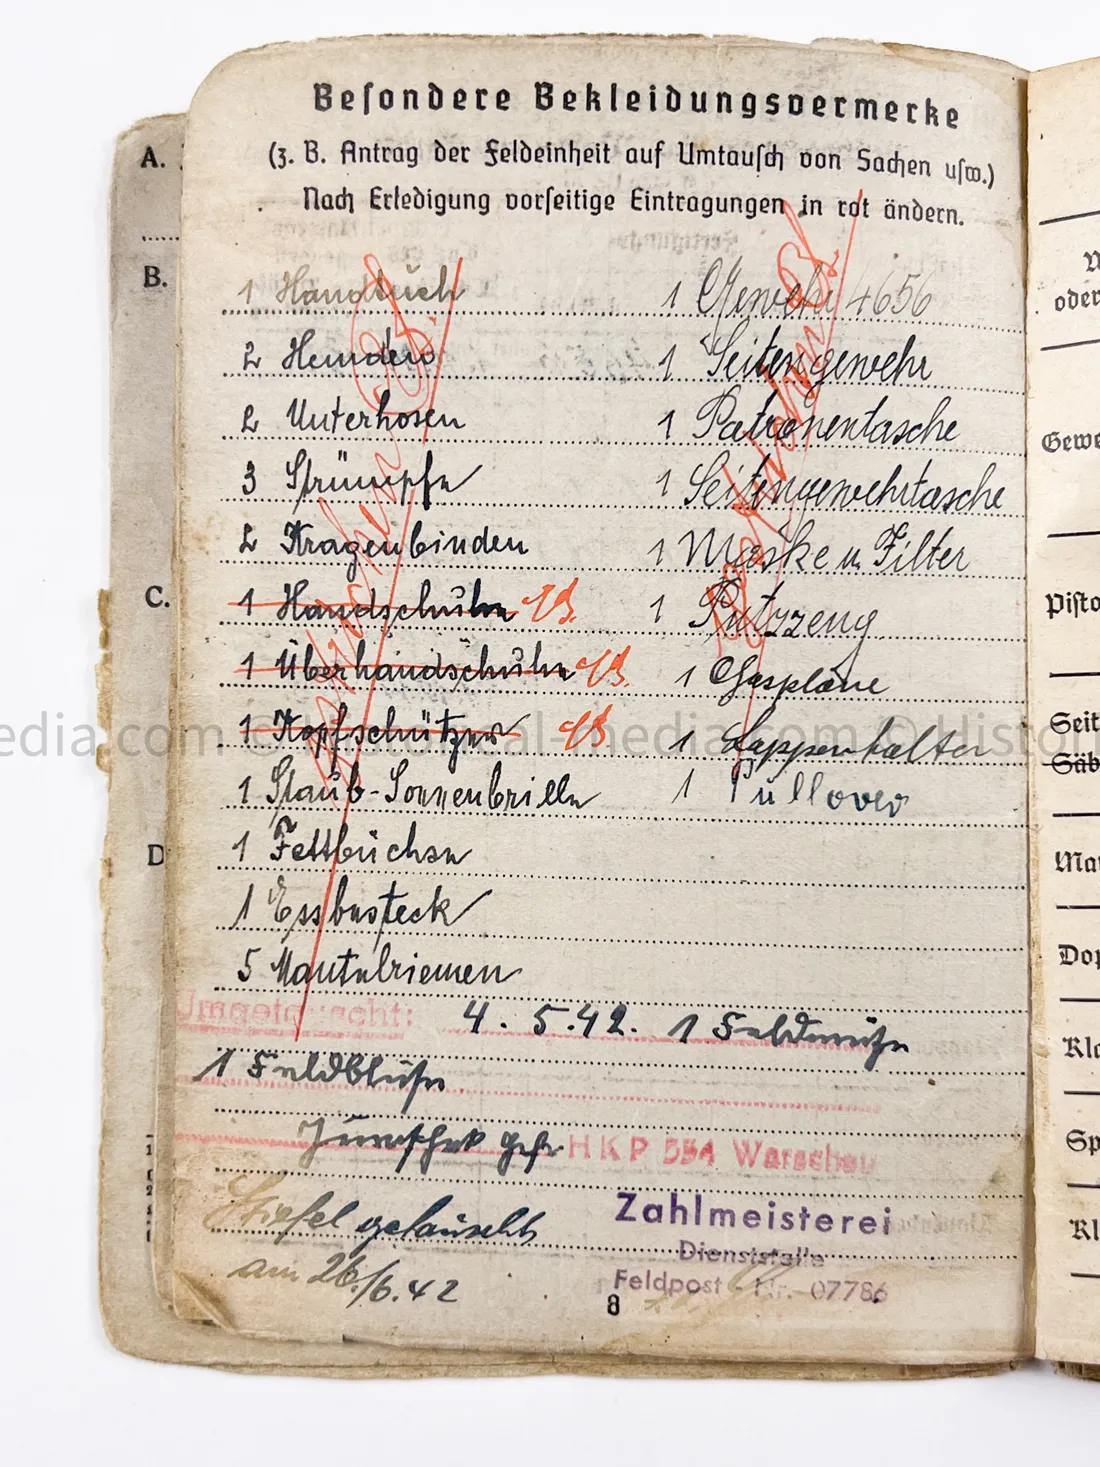 Besondere Bekleidungsvermerke
(z. B. Antrag der Feldeinheit auf Umtausch von Sachen usw.)
Nach Erledigung vorseitige Eintragungen in rot ändern.
1 Handtuch
2 Hemden
2 Unterhosen
3 Strümpfe
2 Kragenbinden
1 Handschuhe
1 Überhandschuhe
1 Kopfschützer
1 Staub-Sonnenbrille
1 Fettbüchse
1 Essbesteck
5 Mantelriemen
1 Gewehr 4656
1 Seitengewehr
1 Patronentasche
1 Seitengewehrtasche
1 Maske u. Filter
1 Putzzeug
1 Gasplane
1 Lappenhalter
1 Pullover
Umgetauscht: 4. 5. 42. 1 Feldmütze
1 Feldbluse
HKP 554 Warschau
Stiefel getauscht
am 26./6. 42
Zahlmeisterei
Dienststelle
Feldpost - Nr. 07786
8
A.
B.
C.
D
oder
Gewe
Pisto
Seit
Säb
Dop
Sp
Kl